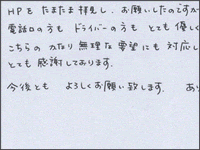 HPを たまたま拝見し、お願いしたのですが
電話口の方も ドライバーの方も とても 優しく
こちらの かなり 無理な 要望 にも 対応し
とても 感謝しております。
今後とも よろしくお願い致します。 あり